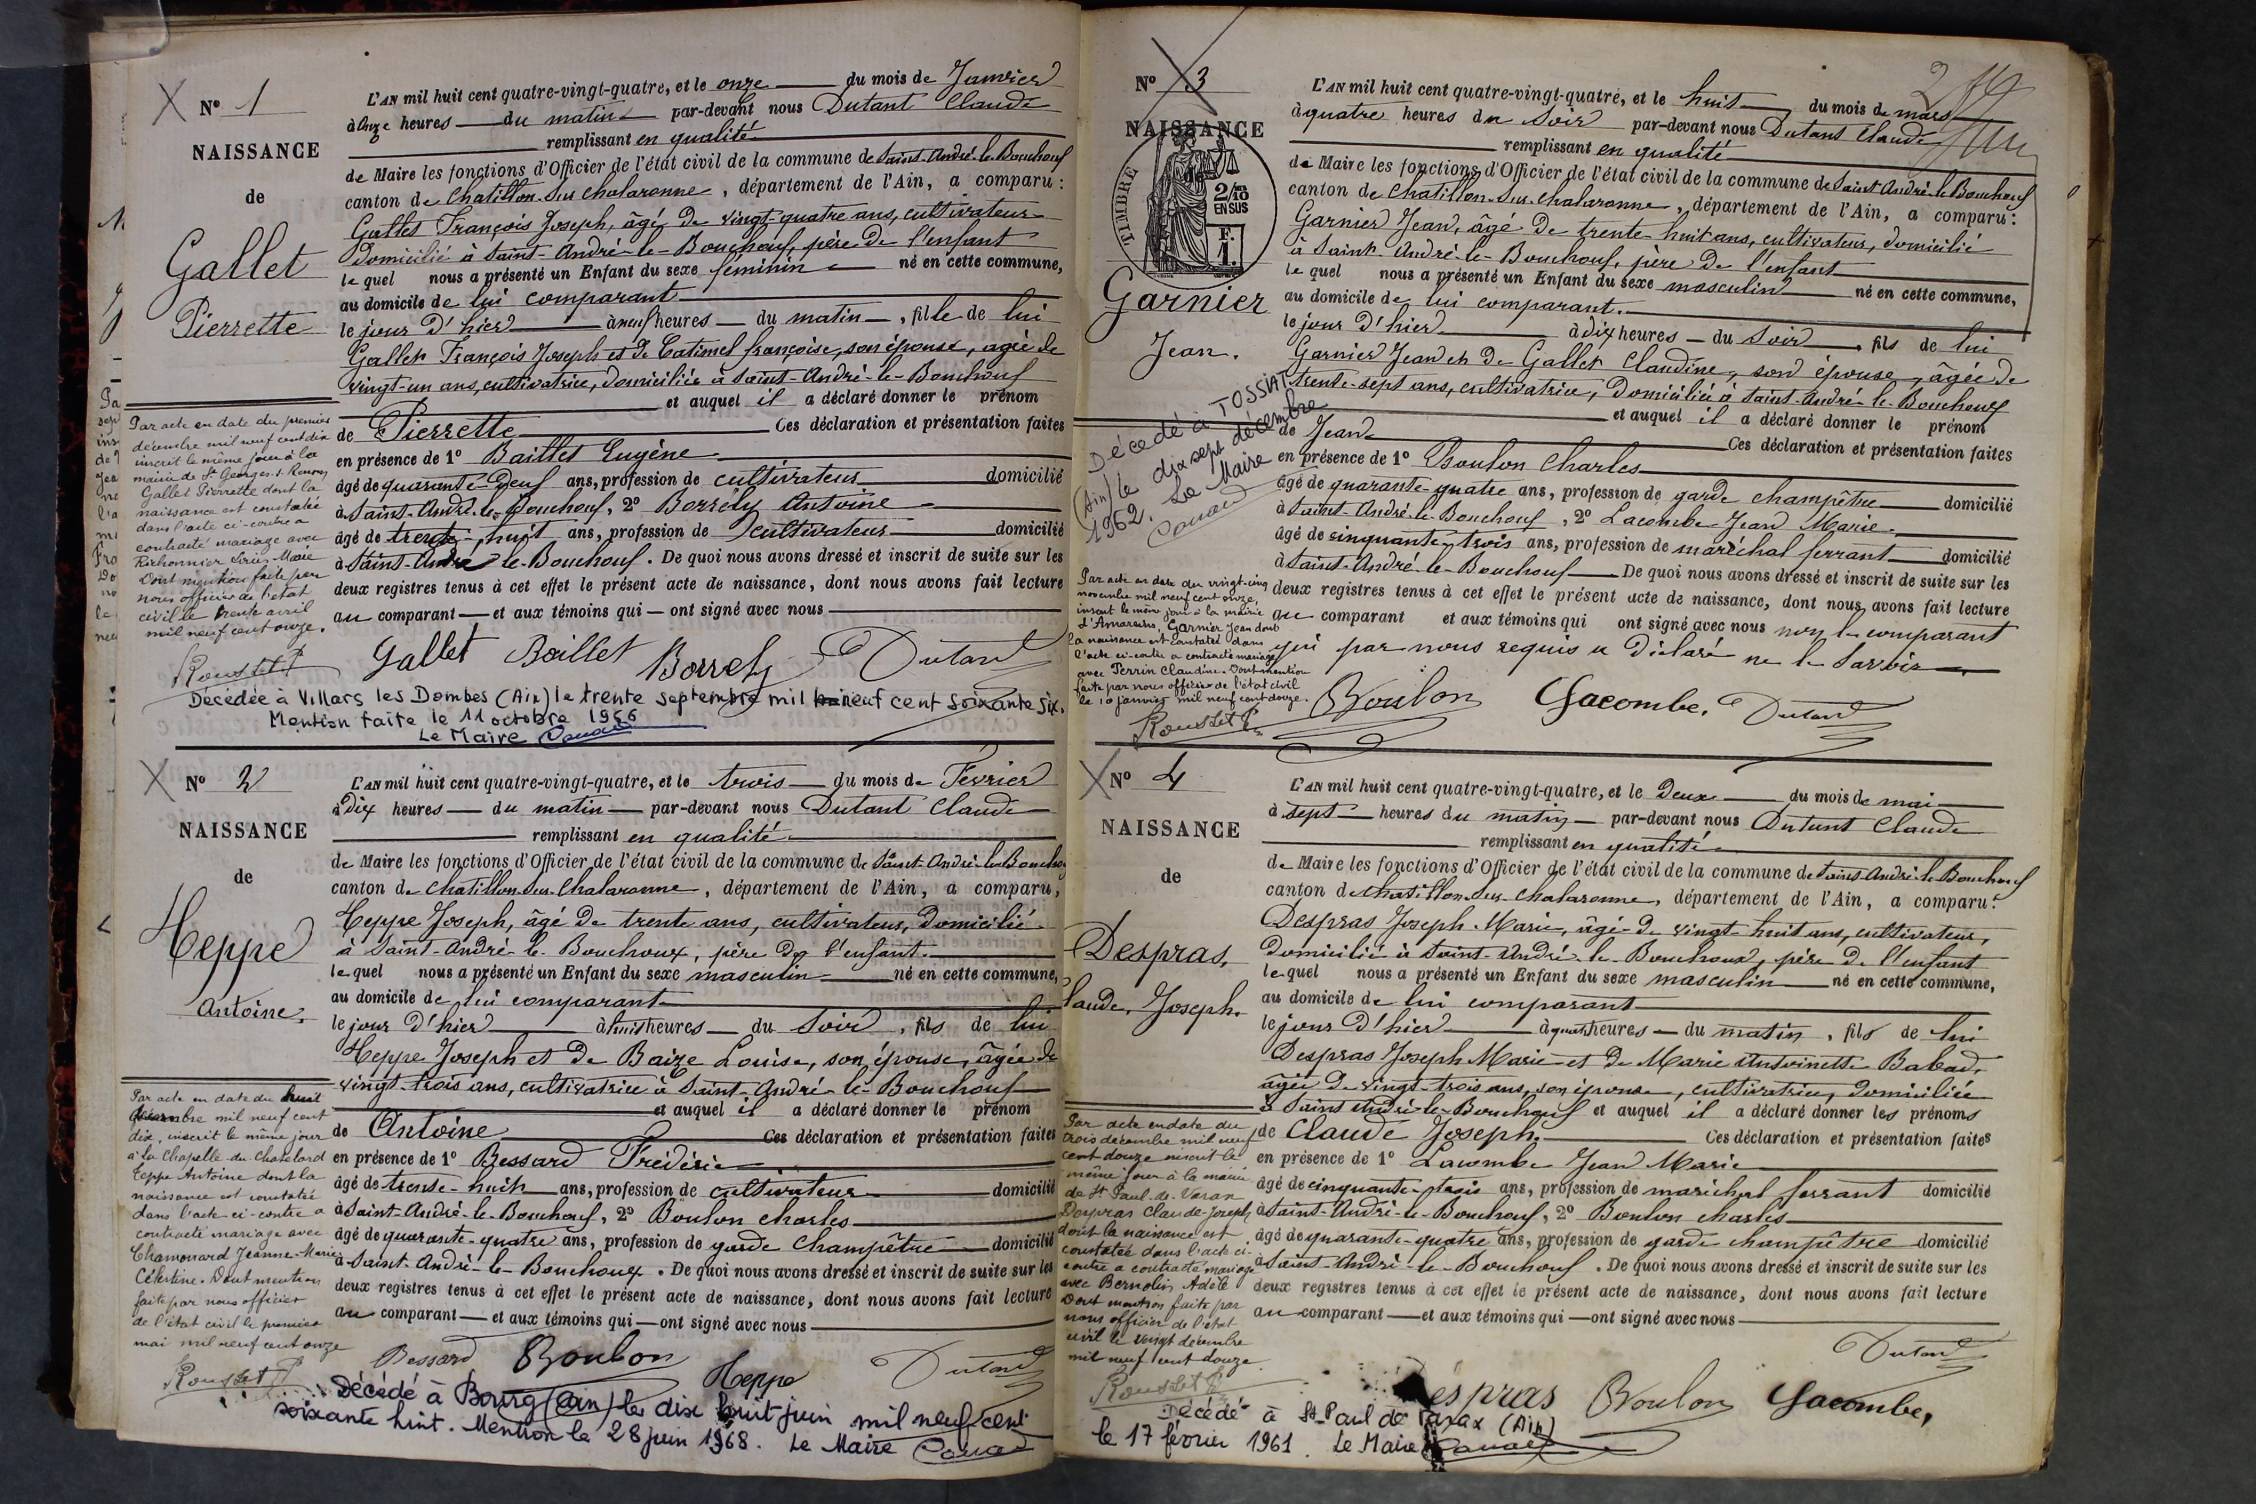 N° 1
NAISSANCE
de
Gallet
Pierrette
L'AN mil huit cent quatre-vingt-quatre, et le onze du mois de Janvier
à Onze heures du matin par-devant nous Dutant Claude
remplissant en qualité
de Maire les fonctions d'Officier de l'état civil de la commune de Saint-André-le-Bouchoux
canton de Chatillon-sur-Chalaronne, département de l'Ain, a comparu :
Gallet François Joseph, âgé de vingt-quatre ans, cultivateur
Domicilié à Saint-André-le-Bouchoux, père de l'enfant
le quel nous a présenté un Enfant du sexe féminin né en cette commune,
au domicile de lui comparant
le jour d'hier à neuf heures du matin, fille de lui
Gallet François Joseph et de Catimel françoise, son épouse, agée de
vingt-un ans, cultivatrice, domiciliée à Saint-André-le-Bouchoux
et auquel il a déclaré donner le prénom
de Pierrette Ces déclaration et présentation faites
en présence de 1° Baillet Eugène
âgé de quarante-neuf ans, profession de cultivateur domicilié
à Saint-André-le-Bouchoux, 2° Borrely Antoine
âgé de trente-huit ans, profession de cultivateur domicilié
à Saint-André-le-Bouchoux. De quoi nous avons dressé et inscrit de suite sur les
deux registres tenus à cet effet le présent acte de naissance, dont nous avons fait lecture
au comparant et aux témoins qui ont signé avec nous
Gallet Baillet Borrely Dutant
Par acte en date du premier
décembre mil neuf cent dix
inscrit le même jour à la
mairie de St Georges-s-Renon
Gallet Pierrette dont la
naissance est constatée
dans l'acte ci-contre a
contracté mariage avec
Richonnier Louis-Marie
Dont mention faite par
nous officier de l'état
civil le trente avril
mil neuf cent onze.
Rousset P
Décédée à Villars les Dombes (Ain) le trente septembre mil neuf cent soixante six.
Mention faite le 11 octobre 1966
Le Maire
N° 2
NAISSANCE
de
Teppe
Antoine.
L'AN mil huit cent quatre-vingt-quatre, et le trois du mois de Février
à Dix heures du matin par-devant nous Dutant Claude
remplissant en qualité
de Maire les fonctions d'Officier de l'état civil de la commune de Saint-André-le-Bouchoux
canton de Chatillon-sur-Chalaronne, département de l'Ain, a comparu,
Teppe Joseph, âgé de trente ans, cultivateur, Domicilié
à Saint-André-le-Bouchoux, père de l'enfant.
le quel nous a présenté un Enfant du sexe masculin né en cette commune,
au domicile de lui comparant
le jour d'hier à huit heures du soir, fils de lui
Teppe Joseph et de Baize Louise, son épouse, âgée de
vingt-trois ans, cultivatrice à Saint-André-le-Bouchoux
et auquel il a déclaré donner le prénom
de Antoine Ces déclaration et présentation faites
en présence de 1° Bessard Frédéric
âgé de trente-huit ans, profession de cultivateur domicilié
à Saint-André-le-Bouchoux, 2° Boulon Charles
âgé de quarante-quatre ans, profession de garde champêtre domicilié
à Saint-André-le-Bouchoux. De quoi nous avons dressé et inscrit de suite sur les
deux registres tenus à cet effet le présent acte de naissance, dont nous avons fait lecture
au comparant et aux témoins qui ont signé avec nous
Bessard Boulon Teppe Dutant
Par acte en date du huit
décembre mil neuf cent
dix, inscrit le même jour
à la Chapelle-du-Chatelard
Teppe Antoine dont la
naissance est constatée
dans l'acte ci-contre a
contracté mariage avec
Chamonard Jeanne-Marie
Célestine. Dont mention
faite par nous officier
de l'état civil le premier
mai mil neuf cent onze
Rousset P
Décédé à Bourg (Ain) le dix huit juin mil neuf cent
soixante huit. Mention le 28 juin 1968. Le Maire
N° 3
NAISSANCE
de
TIMBRE
2/10 EN SUS
F. 1.
Garnier
Jean.
L'AN mil huit cent quatre-vingt-quatre, et le huit du mois de mars
à quatre heures du soir par-devant nous Dutant Claude
remplissant en qualité
de Maire les fonctions d'Officier de l'état civil de la commune de Saint-André-le-Bouchoux
canton de Chatillon-sur-Chalaronne, département de l'Ain, a comparu :
Garnier Jean, âgé de trente-huit ans, cultivateur, domicilié
à Saint-André-le-Bouchoux, père de l'enfant
le quel nous a présenté un Enfant du sexe masculin né en cette commune,
au domicile de lui comparant.
le jour d'hier à dix heures du soir, fils de lui
Garnier Jean et de Gallet Claudine, son épouse, âgée de
trente-sept ans, cultivatrice, Domiciliée à Saint-André-le-Bouchoux
et auquel il a déclaré donner le prénom
de Jean Ces déclaration et présentation faites
en présence de 1° Boulon Charles
âgé de quarante-quatre ans, profession de garde champêtre domicilié
à Saint-André-le-Bouchoux, 2° Lacombe Jean Marie
âgé de cinquante-trois ans, profession de maréchal ferrant domicilié
à Saint-André-le-Bouchoux De quoi nous avons dressé et inscrit de suite sur les
deux registres tenus à cet effet le présent acte de naissance, dont nous avons fait lecture
au comparant et aux témoins qui ont signé avec nous non le comparant
qui par nous requis a déclaré ne le savoir
Boulon Lacombe. Dutant
Décédé à TOSSIAT
(Ain) le dix sept décembre
1962. Le Maire
Par acte en date du vingt-cinq
novembre mil neuf cent onze,
inscrit le même jour à la mairie
d'Amareins, Garnier Jean dont
la naissance est constatée dans
l'acte ci-contre a contracté mariage
avec Perrin Claudine. Dont mention
faite par nous officier de l'état civil
le 10 janvier mil neuf cent douze.
Rousset P.
N° 4
NAISSANCE
de
Despras,
Claude, Joseph.
L'AN mil huit cent quatre-vingt-quatre, et le Deux du mois de mai
à sept heures du matin par-devant nous Dutant Claude
remplissant en qualité
de Maire les fonctions d'Officier de l'état civil de la commune de Saint-André-le-Bouchoux
canton de Chatillon-sur-Chalaronne, département de l'Ain, a comparu :
Despras Joseph-Marie, âgé de vingt-huit ans, cultivateur,
Domicilié à Saint-André-le-Bouchoux, père de l'enfant
le quel nous a présenté un Enfant du sexe masculin né en cette commune,
au domicile de lui comparant
le jour d'hier à quatre heures du matin, fils de lui
Despras Joseph Marie et de Marie Antoinette Babad,
âgée de vingt-trois ans, son épouse, cultivatrice, Domiciliée
à Saint-André-le-Bouchoux et auquel il a déclaré donner les prénoms
de Claude Joseph. Ces déclaration et présentation faites
en présence de 1° Lacombe Jean Marie
âgé de cinquante-trois ans, profession de maréchal ferrant domicilié
à Saint-André-le-Bouchoux, 2° Boulon Charles
âgé de quarante-quatre ans, profession de garde champêtre domicilié
à Saint-André-le-Bouchoux. De quoi nous avons dressé et inscrit de suite sur les
deux registres tenus à cet effet le présent acte de naissance, dont nous avons fait lecture
au comparant et aux témoins qui ont signé avec nous
Dutant
Despras Boulon Lacombe,
Par acte en date du
trois décembre mil neuf
cent douze inscrit le
même jour à la mairie
de St Paul-de-Varax
Despras Claude-Joseph
dont la naissance est
constatée dans l'acte ci-
contre a contracté mariage
avec Bernolin Adèle
Dont mention faite par
nous officier de l'état
civil le vingt décembre
mil neuf cent douze.
Rousset P
Décédé à St Paul de Varax (Ain)
le 17 février 1961. Le Maire